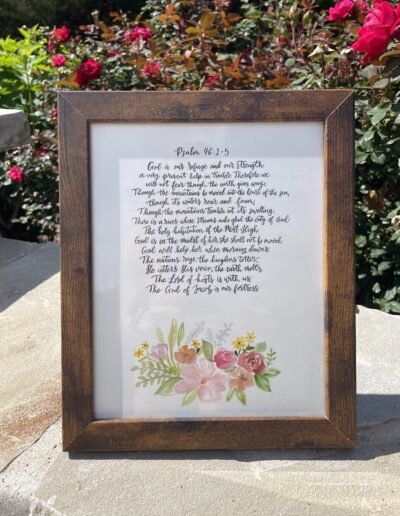 Psalm 46:1-5
God is our refuge and our strength
a very present help in trouble. Therefore we
will not fear though the earth gives way;
Though the mountains be moved into the heart of the sea,
though its waters roar and foam;
Though the mountains tremble at its swelling.
There is a river whose streams make glad the city of God,
The holy habitation of the Most High.
God is in the midst of her she shall not be moved,
God will help her when morning dawns.
The nations rage, the kingdoms totter;
He utters his voice, the earth melts.
The Lord of hosts is with us;
The God of Jacob is our fortress.